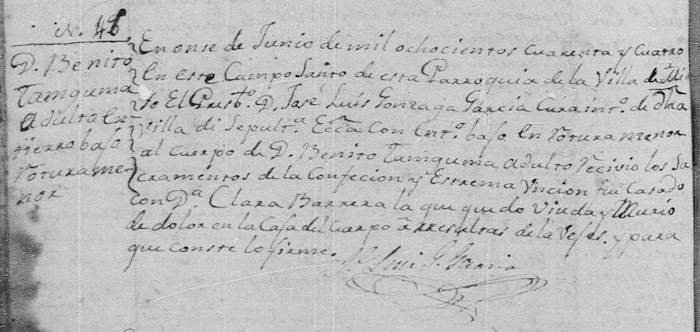 N. 48
D. Benito
Tamguma
Adulto En-
tierro baso
Rotura me
nor
En onse de Junio de mil ochocientos cuarenta y cuatro
En este Campo Santo de esta Parroquia de la Villa de
Yo El Presb.o D. José Luis Gonzaga Garcia Cura int.o de dha
Villa di Sepult.a Ecca con Ent.o baso En rotura menor
al cuerpo de D. Benito Tamguma adulto recivio los Sa
cramentos de la Confecion y Estrema Vncion fue Casado
con D.a Clara Barrera la que quedo Viuda y Murio
de dolor en la Casa del cuerpo a rresultas de la y para
que conste lo firme.
Luis G. Garcia